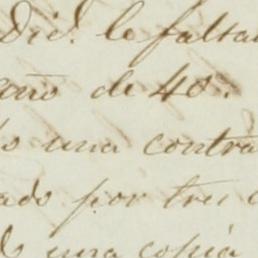 Dic. le faltan
año de 40.
una contra
ado por tres
una copia